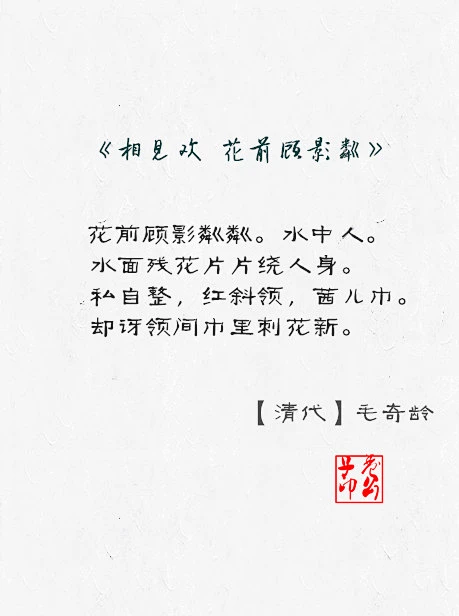 《相见欢 花前顾影粼》
花前顾影粼粼。水中人。
水面残花片片绕人身。
私自整，红斜领，茜儿巾。
却讶领间巾里刺花新。
【清代】毛奇龄